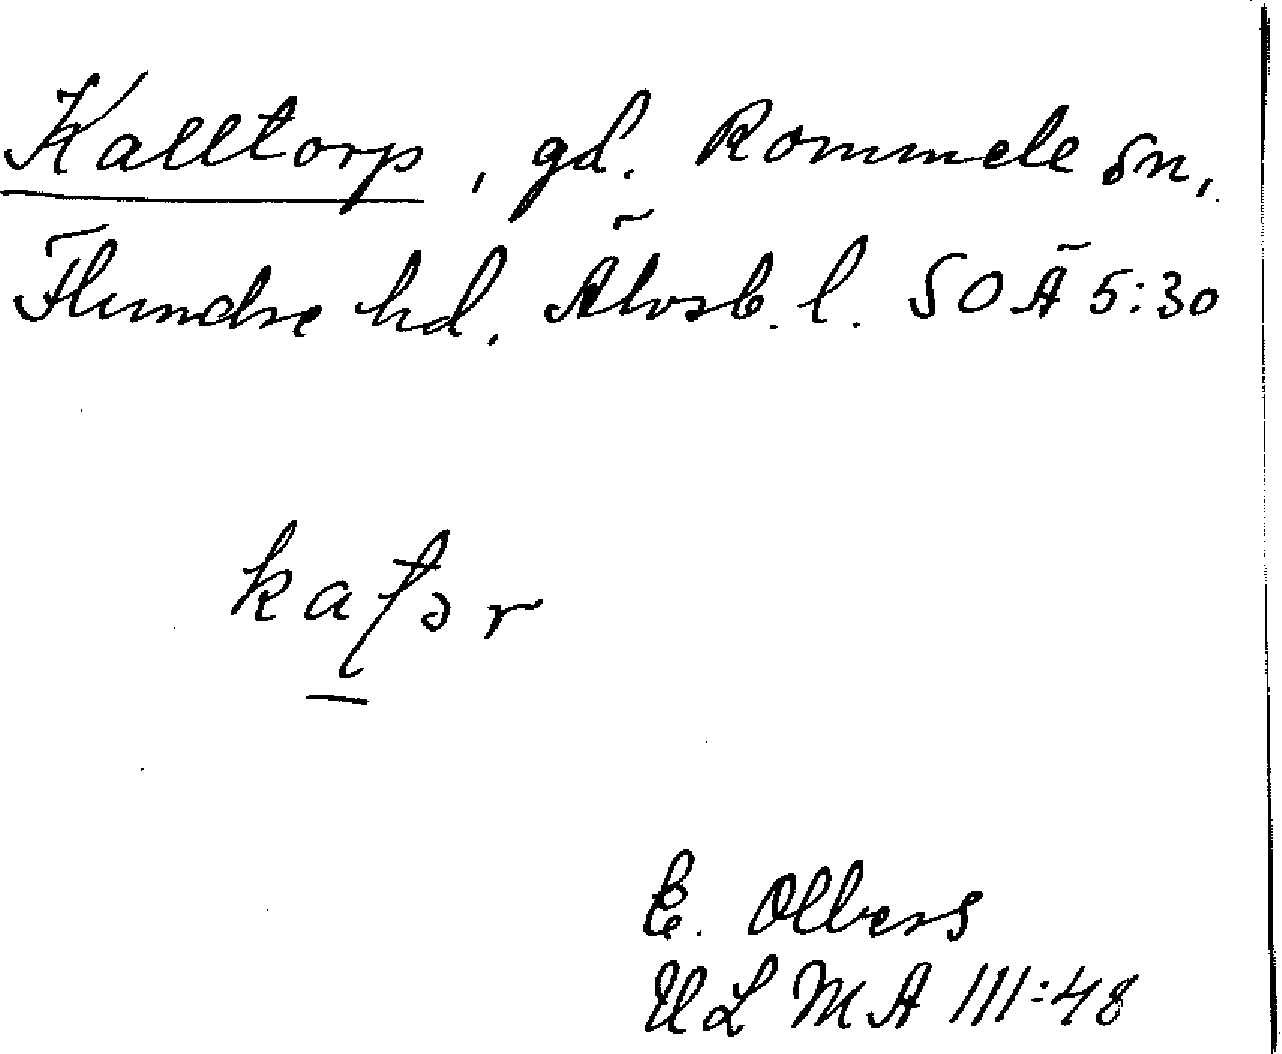 Kalltorp, gd. Rommele sn,
Flundre hd. Älvsb. l. SOÄ 5:30
katər
E. Olbers
ULMA 111:48